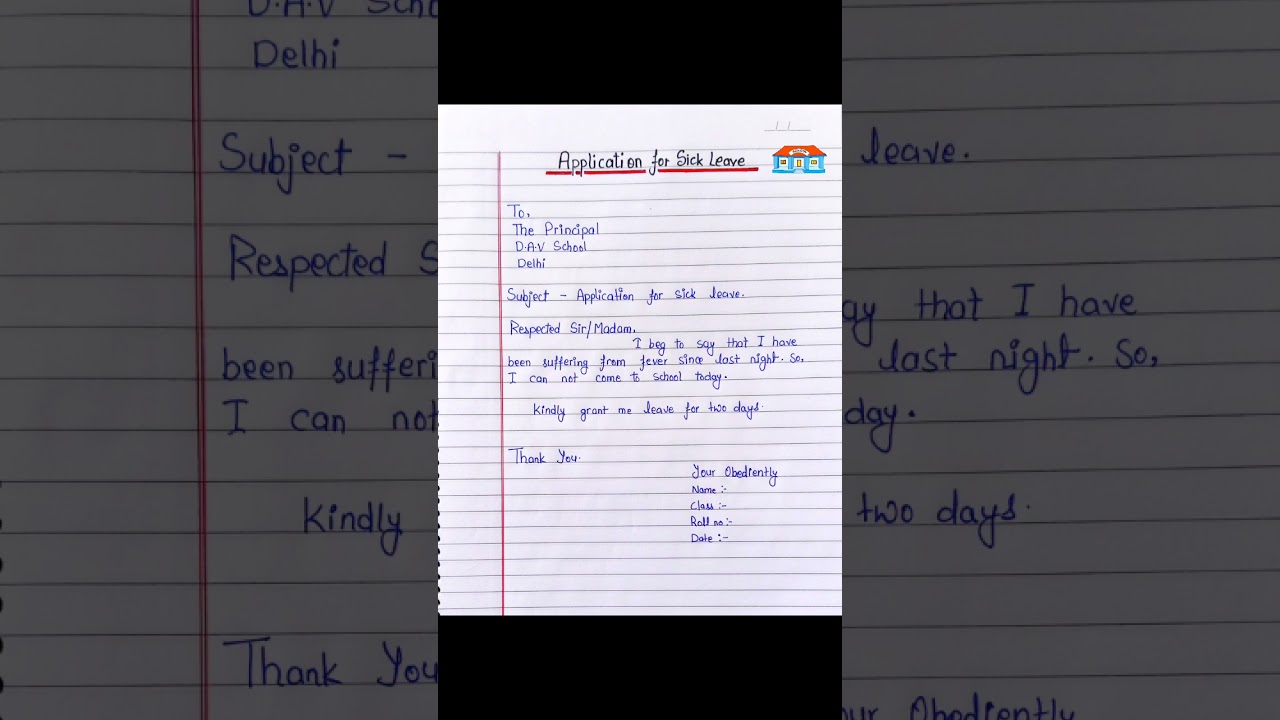 Application for Sick Leave
To,
The Principal
D.A.V School
Delhi
Subject - Application for sick leave.
Respected Sir/Madam,
I beg to say that I have
been suffering from fever since last night. So,
I can not come to school today.
Kindly grant me leave for two days.
Thank You.
Your Obediently
Name :-
Class :-
Roll no :-
Date :-